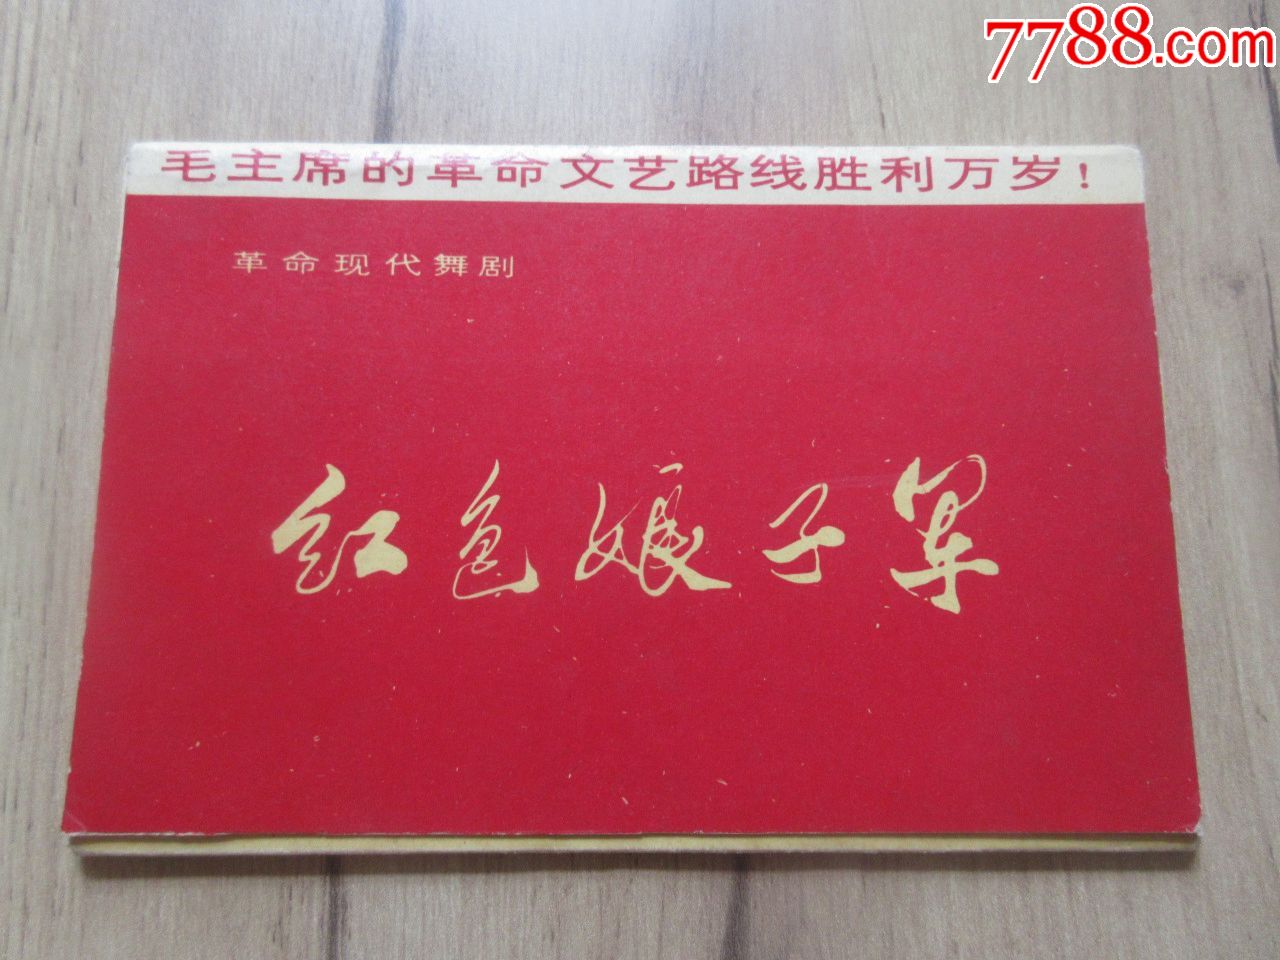 7788.com
毛主席的革命文艺路线胜利万岁！
革命现代舞剧
红色娘子军